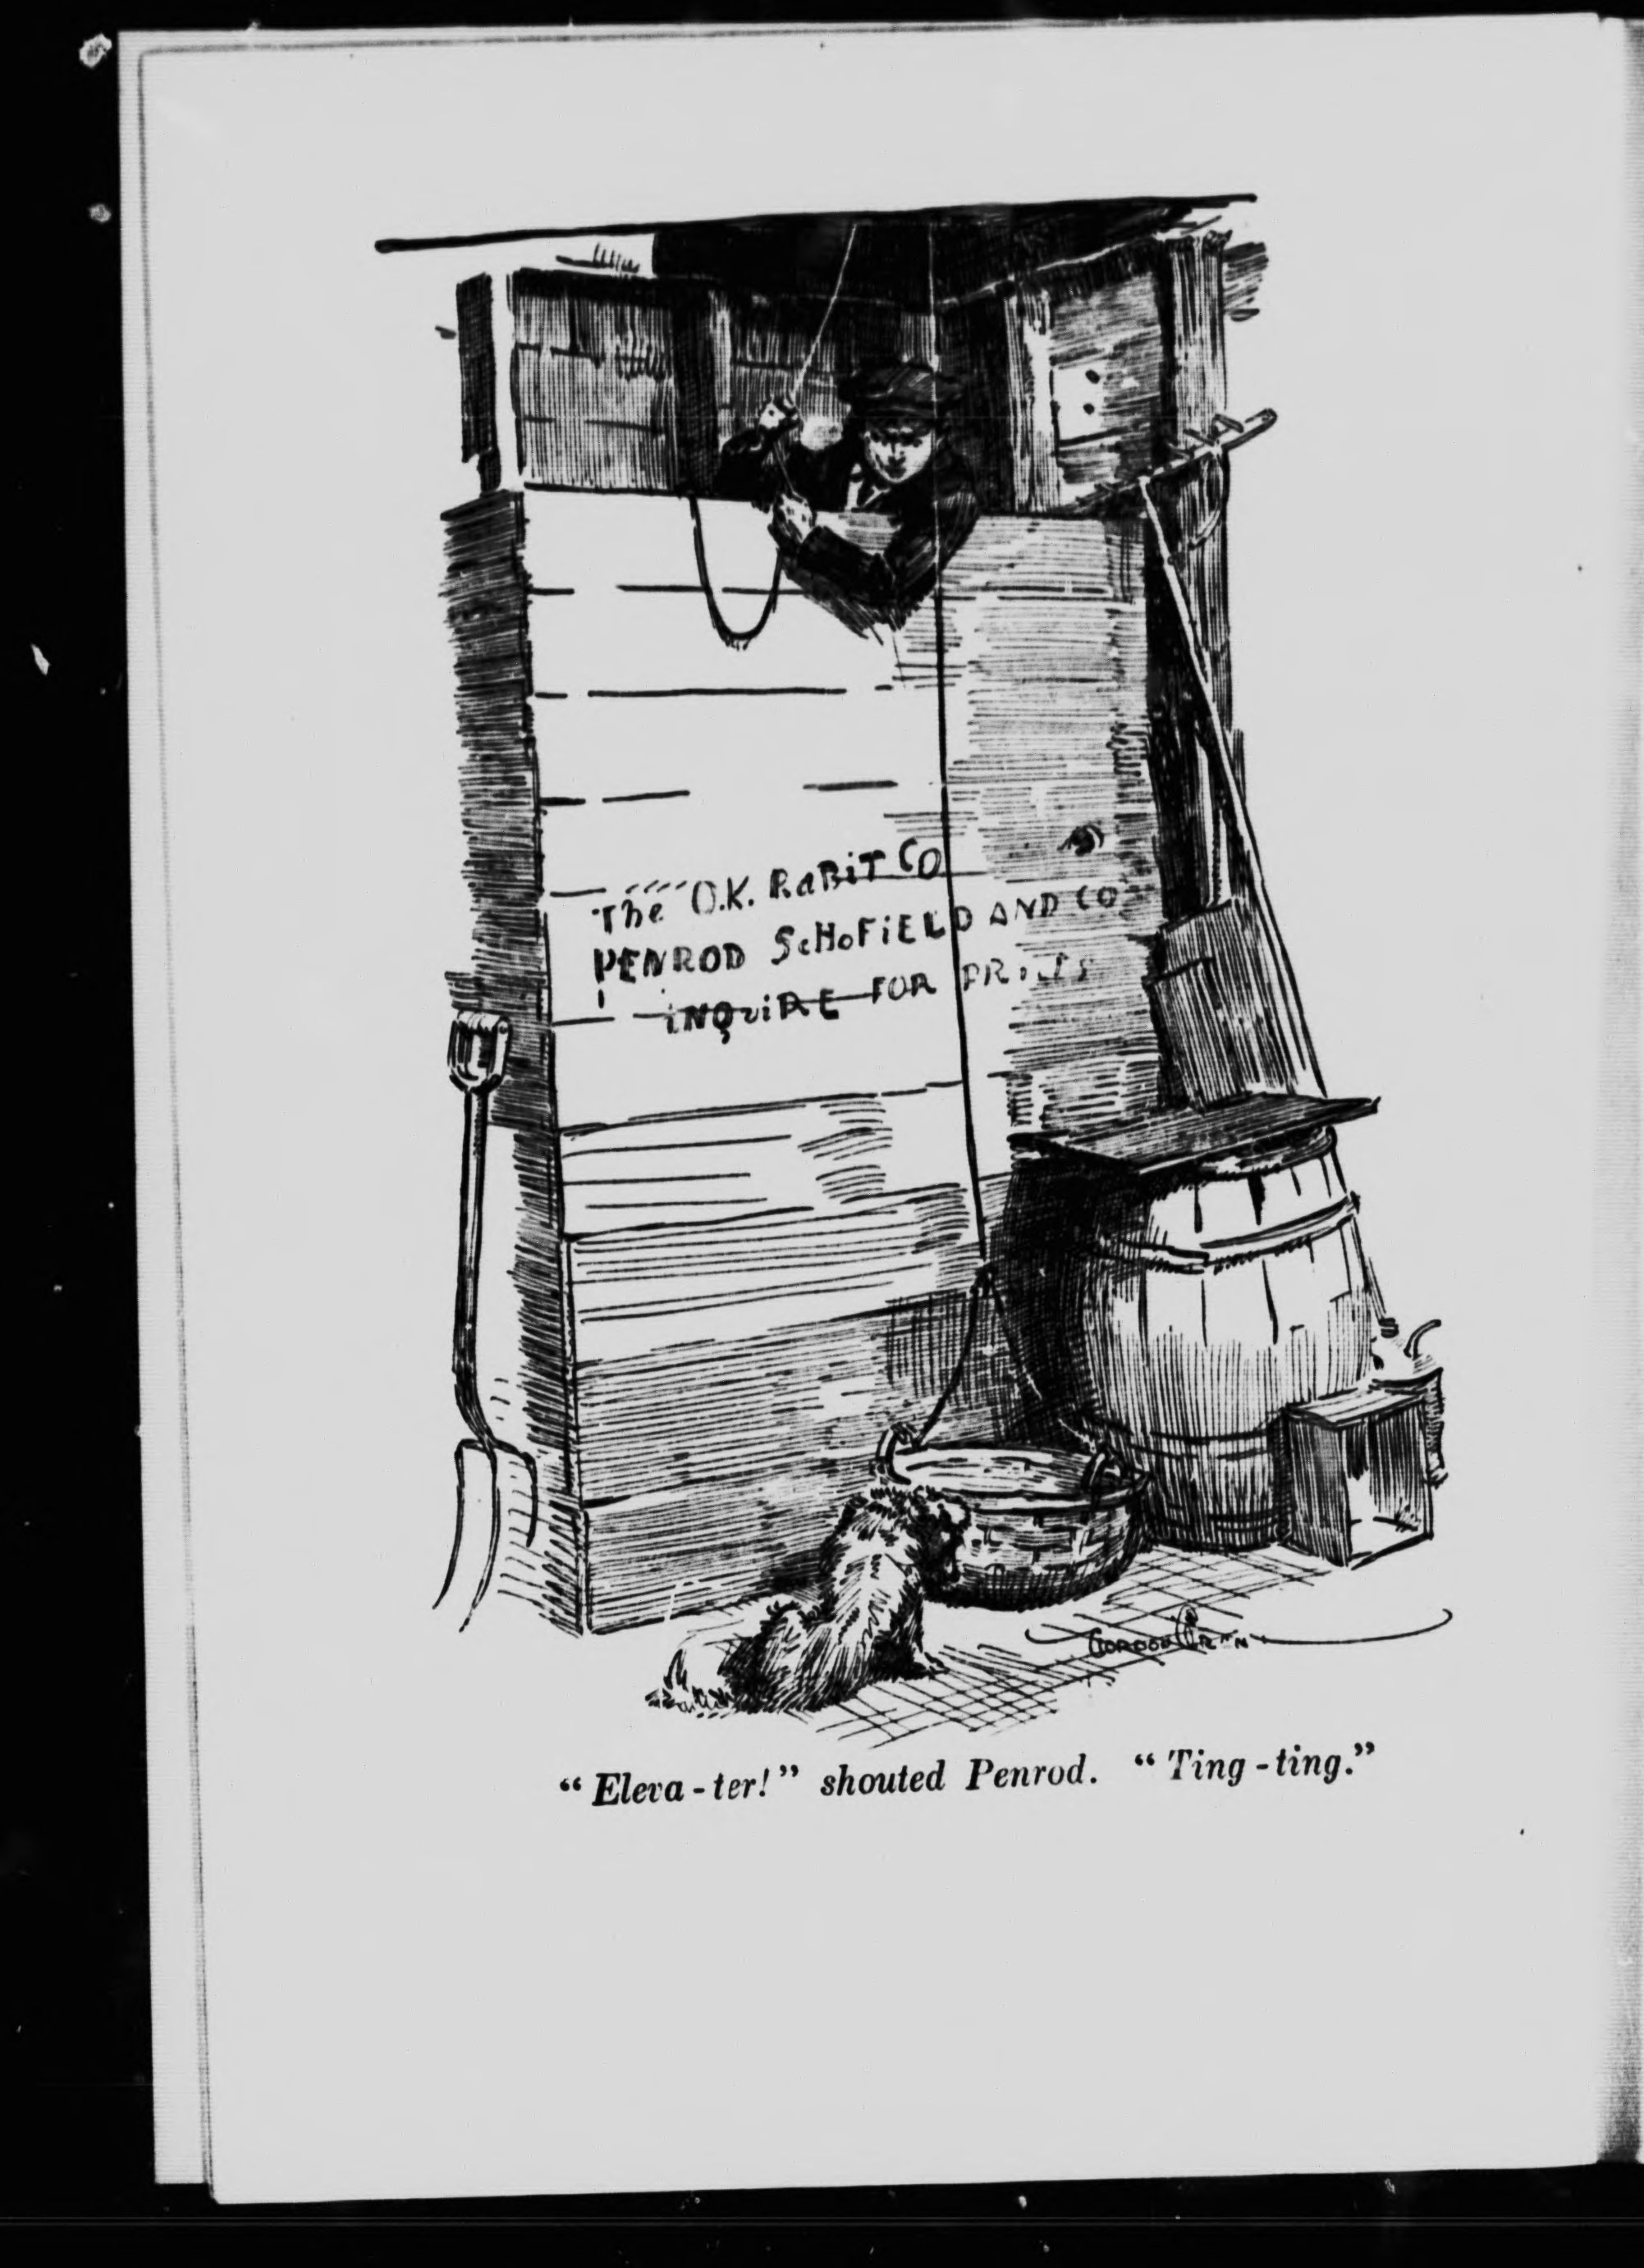 The O.K. RaBiT CO
PENROD ScHoFiELD AND CO
iNQuiRE FOR PRiCES
GORDON GRANT
"Eleva-ter!" shouted Penrod. "Ting-ting."